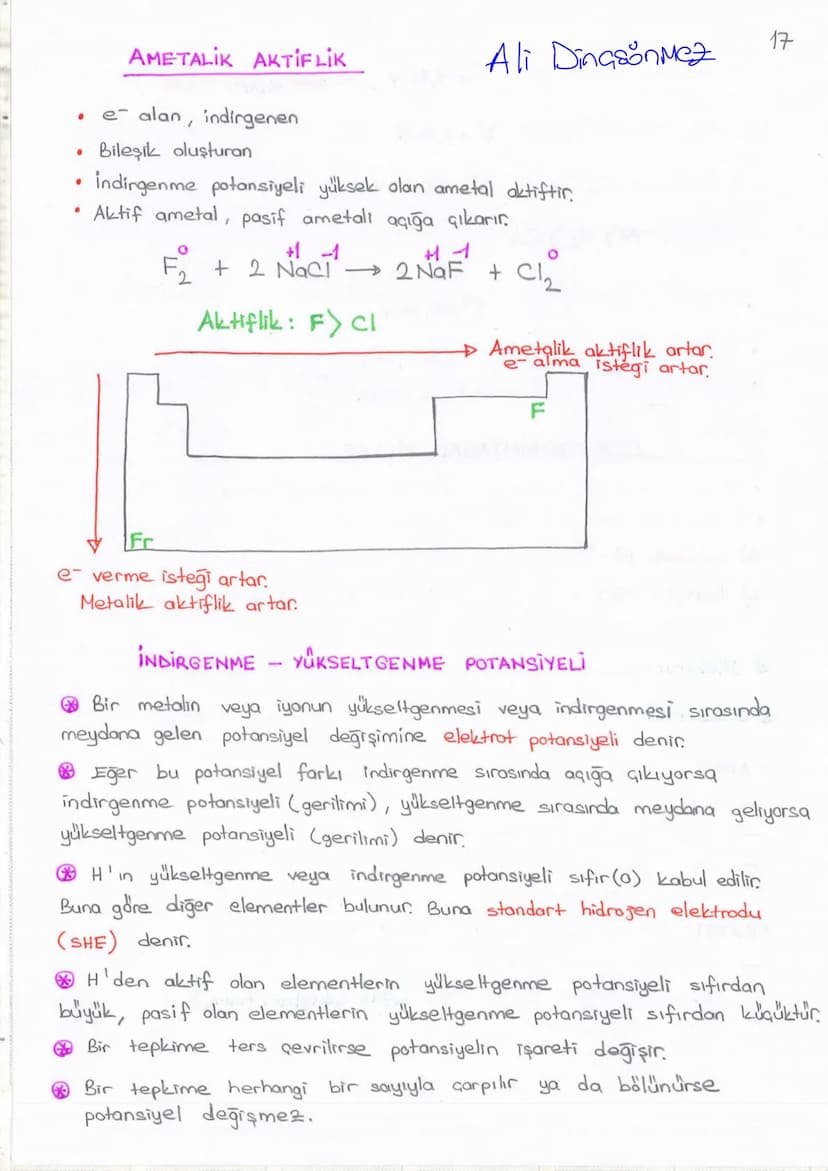 17
AMETALİK AKTİFLİK
Ali Dinçsönmez
• e⁻ alan, indirgenen
• Bileşik oluşturan
• İndirgenme potansiyeli yüksek olan ametal aktiftir.
• Aktif ametal, pasif ametali açığa çıkarır.
0 +1 -1 +1 -1 0
F₂ + 2 NaCl → 2NaF + Cl₂
Aktiflik: F > Cl
Ametalik aktiflik artar.
e⁻ alma isteği artar.
F
Fr
e⁻ verme isteği artar.
Metalik aktiflik artar.
İNDİRGENME – YÜKSELTGENME POTANSİYELİ
Bir metalin veya iyonun yükseltgenmesi veya indirgenmesi sırasında
meydana gelen potansiyel değişimine elektrot potansiyeli denir.
Eğer bu potansiyel farkı indirgenme sırasında açığa çıkıyorsa
indirgenme potansiyeli (gerilimi), yükseltgenme sırasında meydana geliyorsa
yükseltgenme potansiyeli (gerilimi) denir.
H'ın yükseltgenme veya indirgenme potansiyeli sıfır (0) kabul edilir.
Buna göre diğer elementler bulunur. Buna standart hidrojen elektrodu
(SHE) denir.
H'den aktif olan elementlerin yükseltgenme potansiyeli sıfırdan
büyük, pasif olan elementlerin yükseltgenme potansiyeli sıfırdan küçüktür.
Bir tepkime ters çevrilirse potansiyelin işareti değişir.
Bir tepkime herhangi bir sayıyla çarpılır ya da bölünürse
potansiyel değişmez.